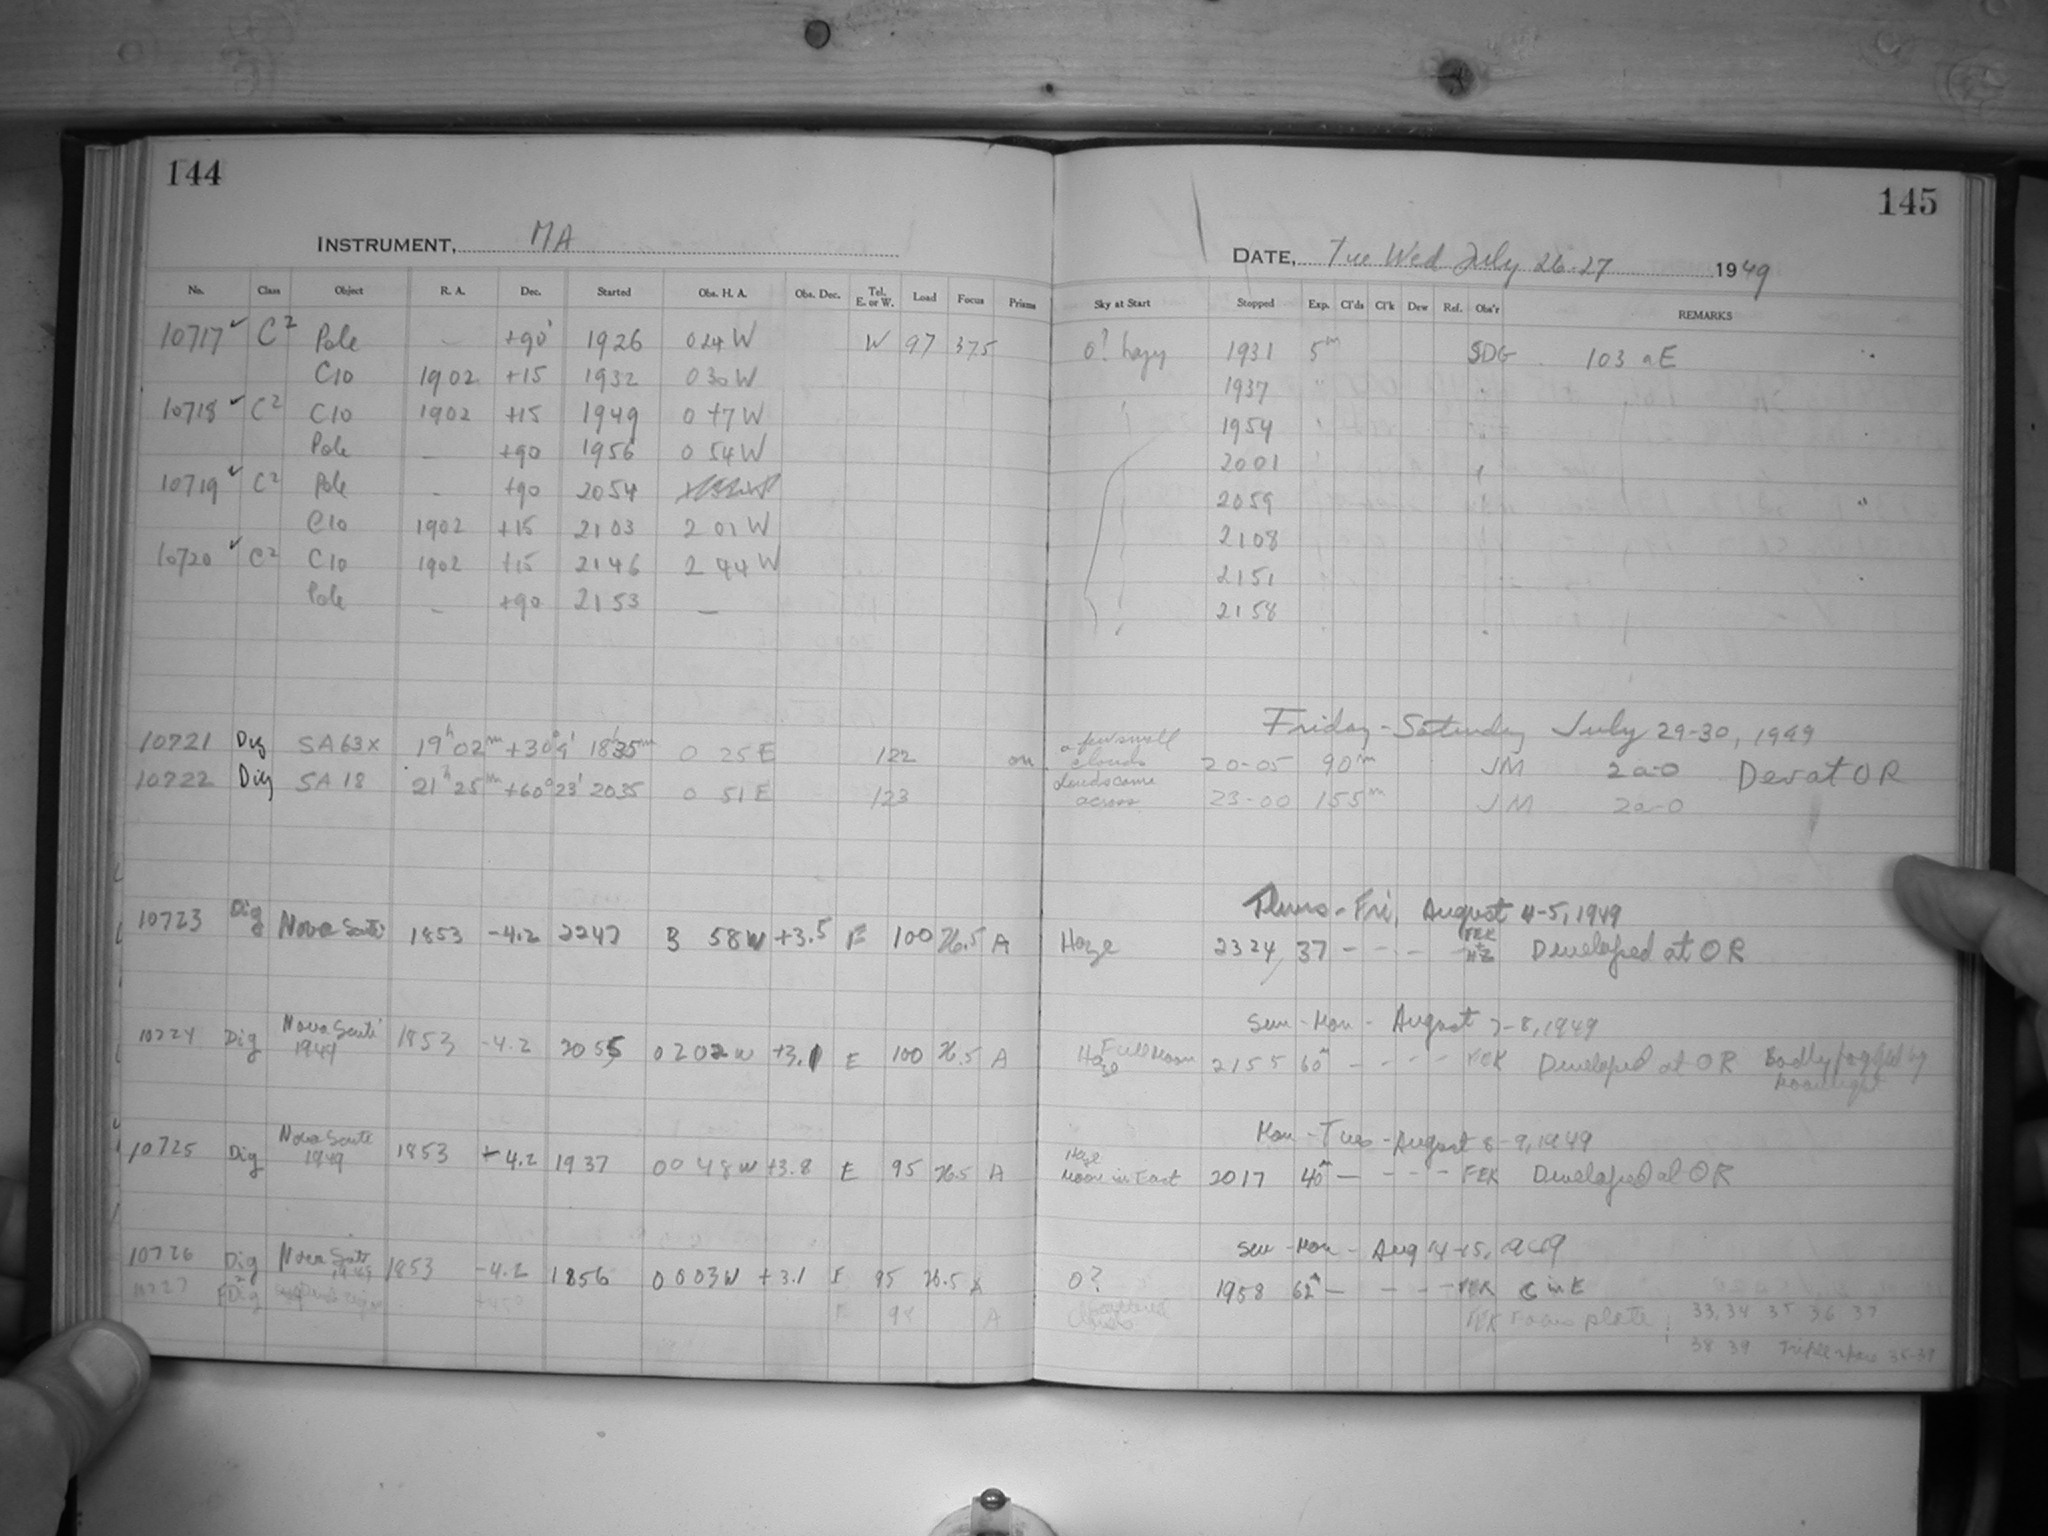 144
INSTRUMENT, MA
No. Class Object R. A. Dec. Started Obs. H. A. Obs. Dec. Tel. E. or W. Load Focus Prisms
10717 ✓ C2 Pole - +90° 1926 0 24 W W 97 375
C10 1902 +15 1932 0 30 W
10718 ✓ C2 C10 1902 +15 1949 0 47 W
Pole - +90 1956 0 54 W
10719 ✓ C2 Pole - +90 2054
C10 1902 +15 2103 2 01 W
10720 ✓ C2 C10 1902 +15 2146 2 44 W
Pole - +90 2153 -
10721 Dig SA 63x 19h 02m +30° 9' 1835m 0 25 E 122 on
10722 Dig SA 18 21h 25m +60° 23' 2035 0 51 E 123
10723 Dig Nova Scuti 1853 -4.2 2247 3 58 W +3.5 E 100 26.5 A
10724 Dig Nova Scuti 1949 1853 -4.2 2055 0 2 02 W +3.1 E 100 26.5 A
10725 Dig Nova Scuti 1949 1853 -4.2 1937 00 48 W +3.8 E 95 26.5 A
10726 Dig Nova Scuti 1949 1853 -4.2 1856 0 003 W +3.1 E 95 26.5 A
10727 Dig E 94 A
145
DATE, Tue Wed July 26-27 1949
Sky at Start Stopped Exp. Cl'ds Cl'k Dew Ref. Obs'r REMARKS
0? hazy 1931 5m SDG 103 aE
1937 "
1954
2001
2059
2108
2151
2158
Friday - Saturday July 29-30, 1949
a few small clouds 20-05 90m JM 2a-0 Dev at OR
clouds came across 23-00 155m JM 2a-0
Thurs - Fri, August 4-5, 1949
Haze 2324 37 - - - - FEK + HZ Developed at OR
Sun - Mon - August 7-8, 1949
Haze Full Moon 2155 60m - - - - FEK Developed at OR Badly fogged by Moonlight
Mon - Tues - August 8-9, 1949
Haze Moon in East 2017 40m - - - - FEK Developed at OR
Sun - Mon - Aug 14-15, 1949
0? 1958 62m - - - - FEK C in E
Scattered Clouds FEK Focus plate ; 33, 34 35 36 37
38 39 Triple space 38-39